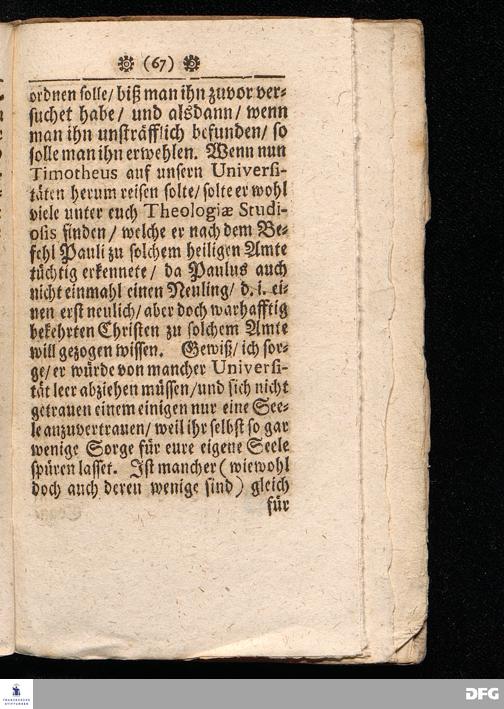 (67)
ordnen solle/ biß man ihn zuvor ver-
suchet habe/ und alsdann/ wenn
man ihn unsträfflich befunden/ so
solle man ihn erwehlen. Wenn nun
Timotheus auf unsern Universi-
täten herum reisen solte/ solte er wohl
viele unter euch Theologiæ Studi-
osis finden/ welche er nach dem Be-
fehl Pauli zu solchem heiligen Amte
tüchtig erkennete/ da Paulus auch
nicht einmahl einen Neuling/ d. i. ei-
nen erst neulich/ aber doch warhafftig
bekehrten Christen zu solchem Amte
will gezogen wissen. Gewiß/ ich sor-
ge/ er würde von mancher Universi-
tät leer abziehen müssen/ und sich nicht
getrauen einem einigen nur eine See-
le anzuvertrauen/ weil ihr selbst so gar
wenige Sorge für eure eigene Seele
spüren lasset. Ist mancher (wiewohl
doch auch deren wenige sind) gleich
für
FRANCKESCHE
STIFTUNGEN
DFG